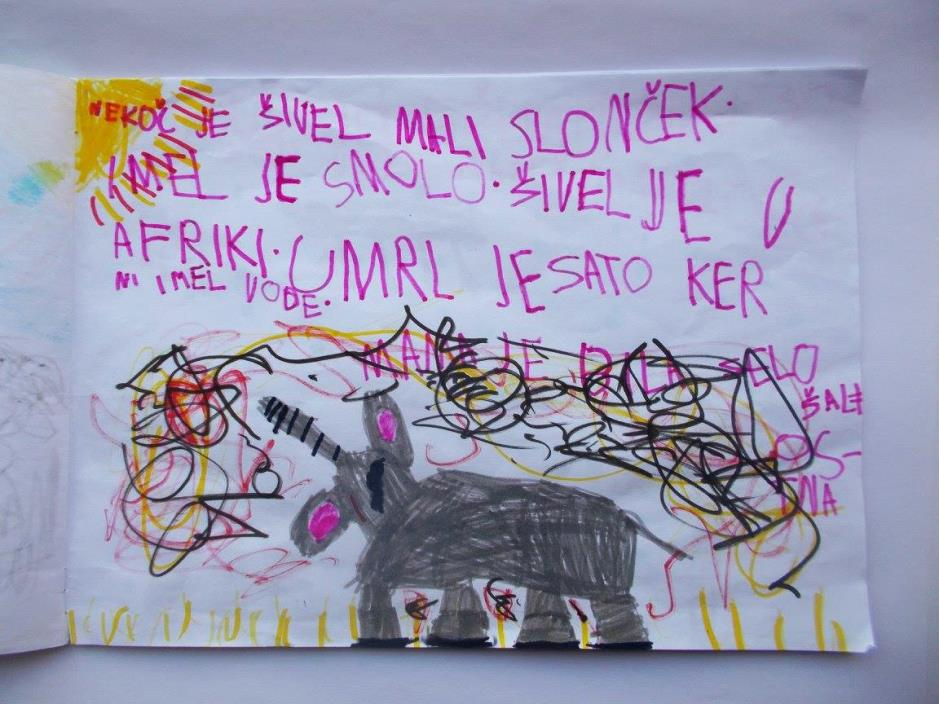 NEKOČ JE ŠIVEL MALI SLONČEK.
IMEL JE SMOLO. ŠIVEL JE V
AFRIKI. UMRL JE SATO KER
NI IMEL VODE.
MAMA JE BILA SELO
ŠALO
OS-
TNA